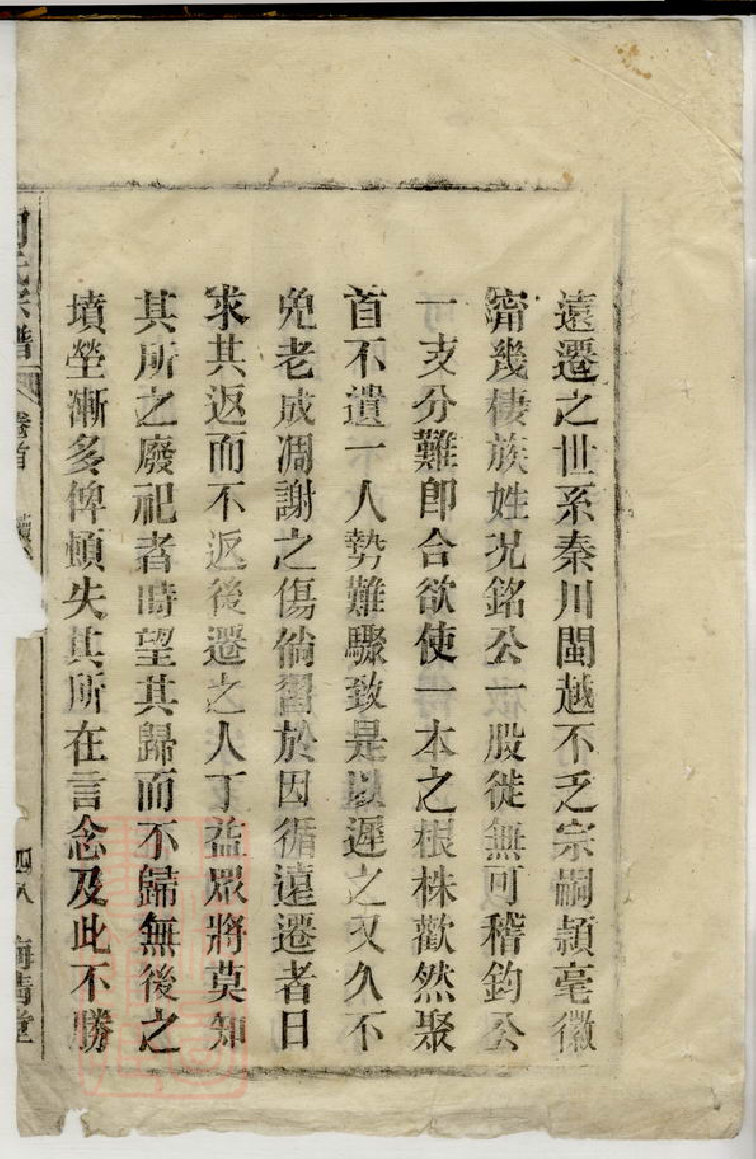 遠遷之世系秦川閩越不乏宗嗣潁亳徽
甯幾棲族姓況銘公一股徙無可稽鈞公
一支分難即合欲使一本之根株歡然聚
首不遺一人勢難驟致是以遲之又久不
免老成凋謝之傷倘習於因循遠遷者日
求其返而不返後遷之人丁益眾將莫知
其所之廢祀者時望其歸而不歸無後之
墳塋漸多俾頓失其所在言念及此不勝
氏宗譜 卷首 四八 堂